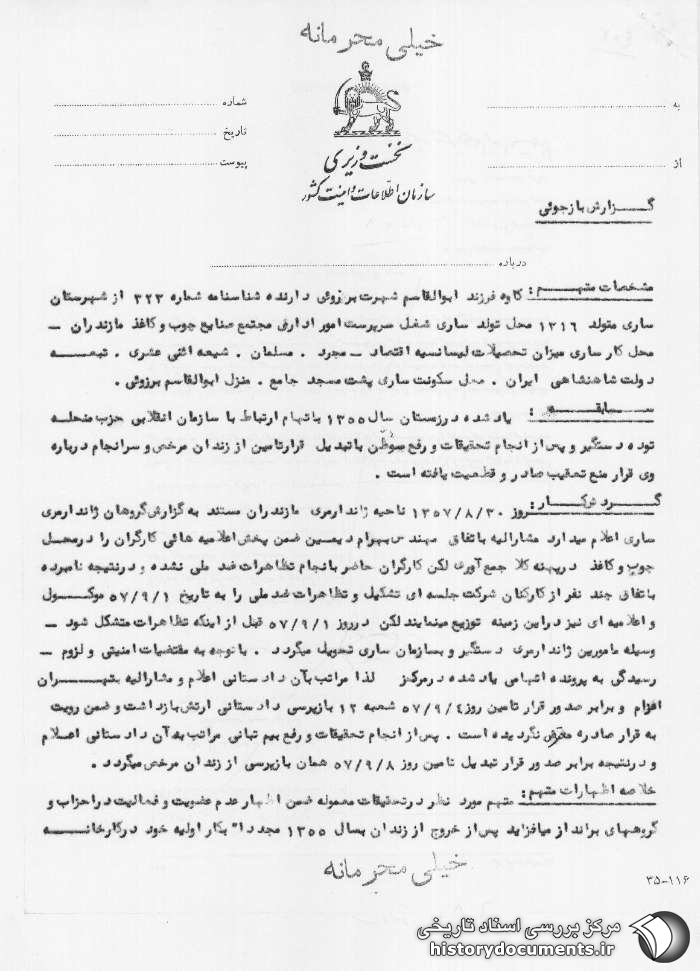 خیلی محرمانه
نخست وزیری
سازمان اطلاعات و امنیت کشور
به
از
شماره
تاریخ
پیوست
گـــزارش بازجوئی
درباره
مشخصات متهـــم : کاوه فرزند ابوالقاسم شهرت برزوئی دارنده شناسنامه شماره ۳۲۳ از شهرستان
ساری متولد ۱۳۱۶ محل تولد ساری شغل سرپرست امور اداری مجتمع صنایع چوب و کاغذ مازندران –
محل کار ساری میزان تحصیلات لیسانسیه اقتصاد – مجرد . مسلمان . شیعه اثنی عشری . تبعـــه
دولت شاهنشاهی ایران . محل سکونت ساری پشت مسجد جامع . منزل ابوالقاسم برزوئی .
ســـابقـــه : یاد شده در زمستان سال ۱۳۵۵ باتهام ارتباط با سازمان انقلابی حزب منحلـه
توده دستگیر و پس از انجام تحقیقات و رفع سوظن با تبدیل قرار تامین از زندان مرخص و سرانجام درباره
وی قرار منع تعقیب صادر و قطعیت یافته است .
گـــردش کـــار : روز ۱۳۵۷/۸/۳۰ ناحیه ژاندارمری مازندران مستند به گزارش گروهان ژاندارمری
ساری اعلام میدارد مشارالیه باتفاق مهندس بهرام دیهسین ضمن پخش اعلامیه هائی کارگران را در محـل
چوب و کاغذ در پهنه کلا جمع آوری لکن کارگران حاضر بانجام تظاهرات ضد ملی نشده و در نتیجه نامبرده
باتفاق چند نفر از کارکنان شرکت جلسه ای تشکیل و تظاهرات ضد ملی را به تاریخ ۵۷/۹/۱ موکـــول
و اعلامیه ای نیز در این زمینه توزیع مینمایند لکن در روز ۵۷/۹/۱ قبل از اینکه تظاهرات متشکل شود –
وسیله مامورین ژاندارمری دستگیر و بسازمان ساری تحویل میگردد . با توجه به مقتضیات امنیتی و لزوم –
رسیدگی به پرونده اتهامی یاد شده در مرکز لذا مراتب بآن دادستانی اعلام و مشارالیه بتهـــران
اعزام و برابر صدور قرار تامین روز ۵۷/۹/۴ شعبه ۱۲ بازپرسی دادستانی ارتش بازداشت و ضمن رویت
به قرار صادره معترض نگردیده است . پس از انجام تحقیقات و رفع بیم تبانی مراتب به آن دادستانی اعـلام
و در نتیجه برابر صدور قرار تبدیل تامین روز ۵۷/۹/۸ همان بازپرسی از زندان مرخص میگردد .
خلاصه اظهارات متهم : متهم مورد نظر در تحقیقات معموله ضمن اظهار عدم عضویت و فعالیت در احزاب و
گروههای برانداز میافزاید پس از خروج از زندان بسال ۱۳۵۵ مجددا" بکار اولیه خود در کارخانـــه
خیلی محرمانه
۳۵-۱۱۶
مرکز بررسی اسناد تاریخی
historydocuments.ir